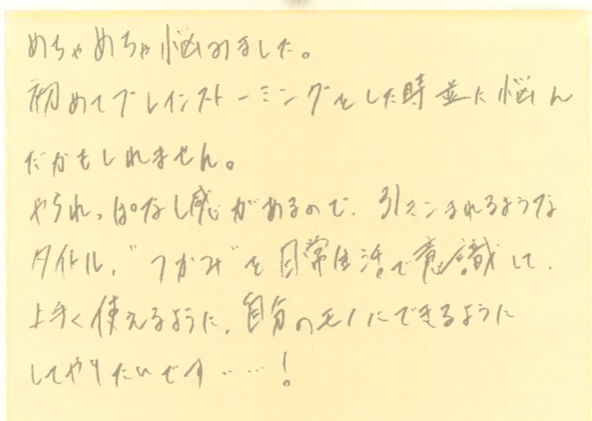 めちゃめちゃ悩みました。
初めてブレインストーミングをした時並に悩ん
だかもしれません。
やられっぱなし感があるので、引きこまれるような
タイトル、"つかみ"を日常生活で意識して、
上手く使えるように、自分のモノにできるように
してやりたいです……!